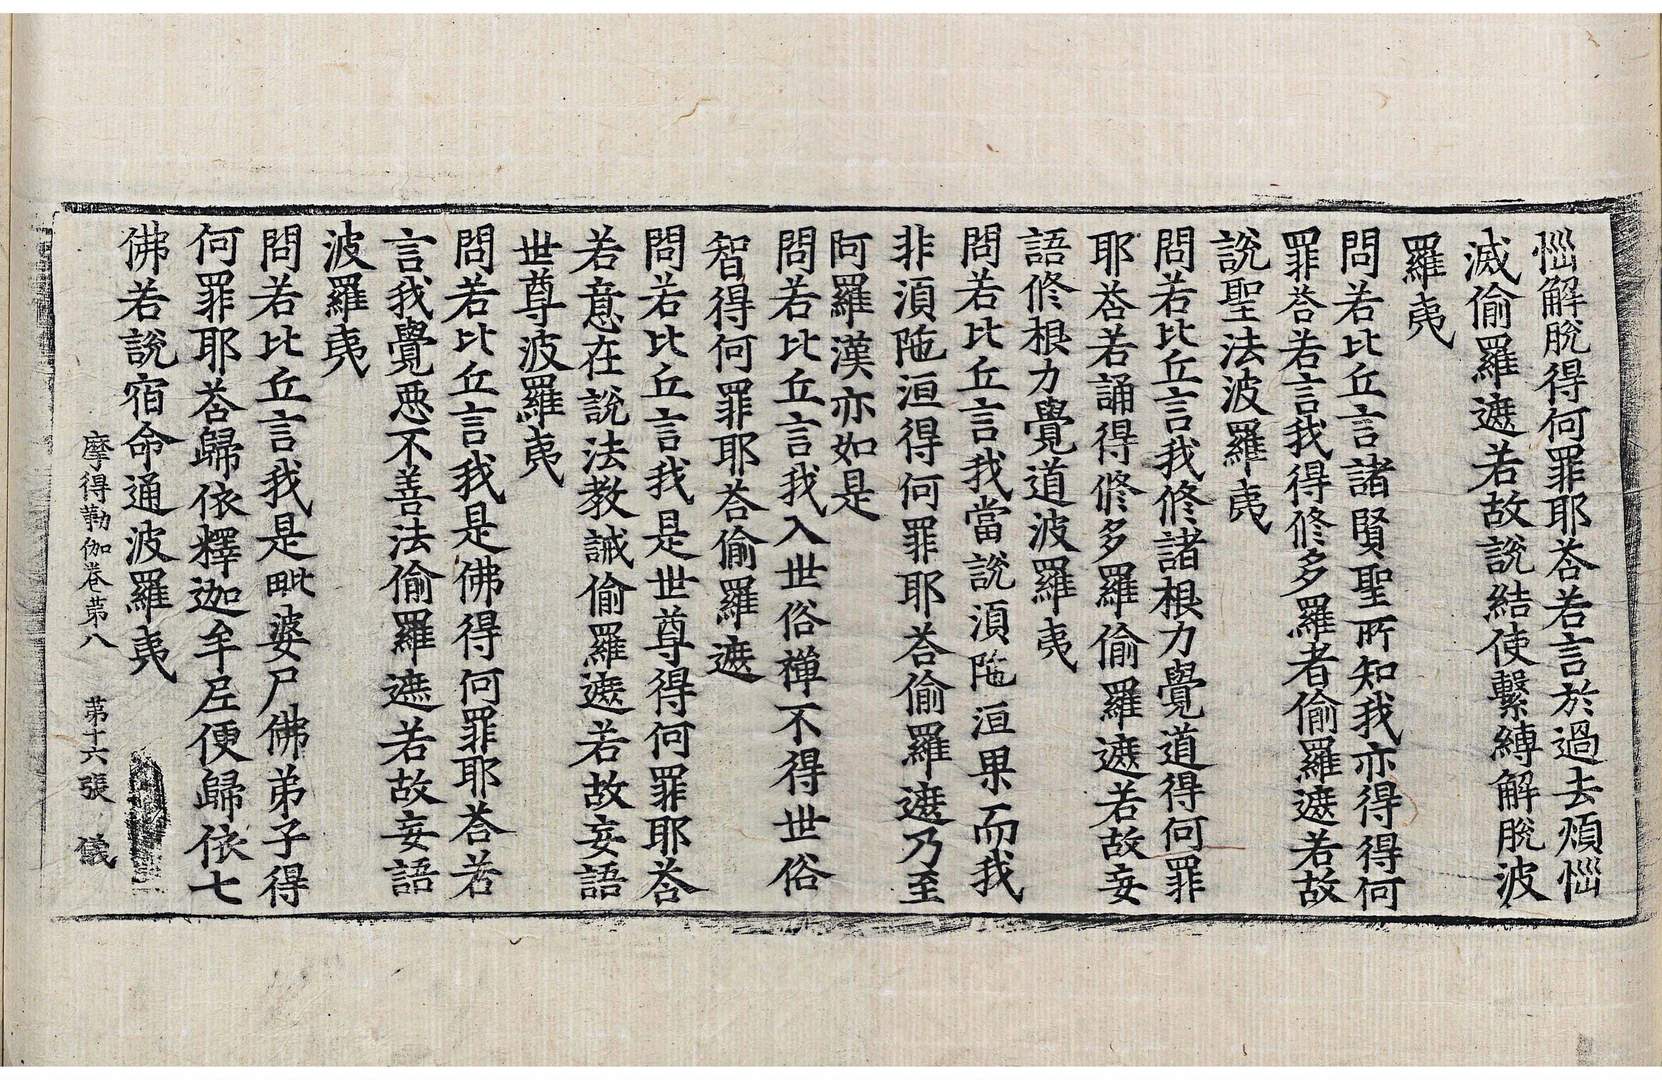 惱解脫得何罪耶荅若言於過去煩惱
滅偷羅遮若故說結使繫縛解脫波
羅夷
問若比丘言諸賢聖所知我亦得得何
罪荅若言我得修多羅者偷羅遮若故
說聖法波羅夷
問若比丘言我修諸根力覺道得何罪
耶荅若誦得修多羅偷羅遮若故妄
語修根力覺道波羅夷
問若比丘言我當說湏陁洹果而我
非湏陁洹得何罪耶荅偷羅遮乃至
阿羅漢亦如是
問若比丘言我入世俗禪不得世俗
智得何罪耶荅偷羅遮
問若比丘言我是世尊得何罪耶荅
若意在說法教誡偷羅遮若故妄語
世尊波羅夷
問若比丘言我是佛得何罪耶荅若
言我覺惡不善法偷羅遮若故妄語
波羅夷
問若比丘言我是毗婆尸佛弟子得
何罪耶荅歸依釋迦牟尼便歸依七
佛若說宿命通波羅夷
摩得勒伽卷第八　第十六張　儀